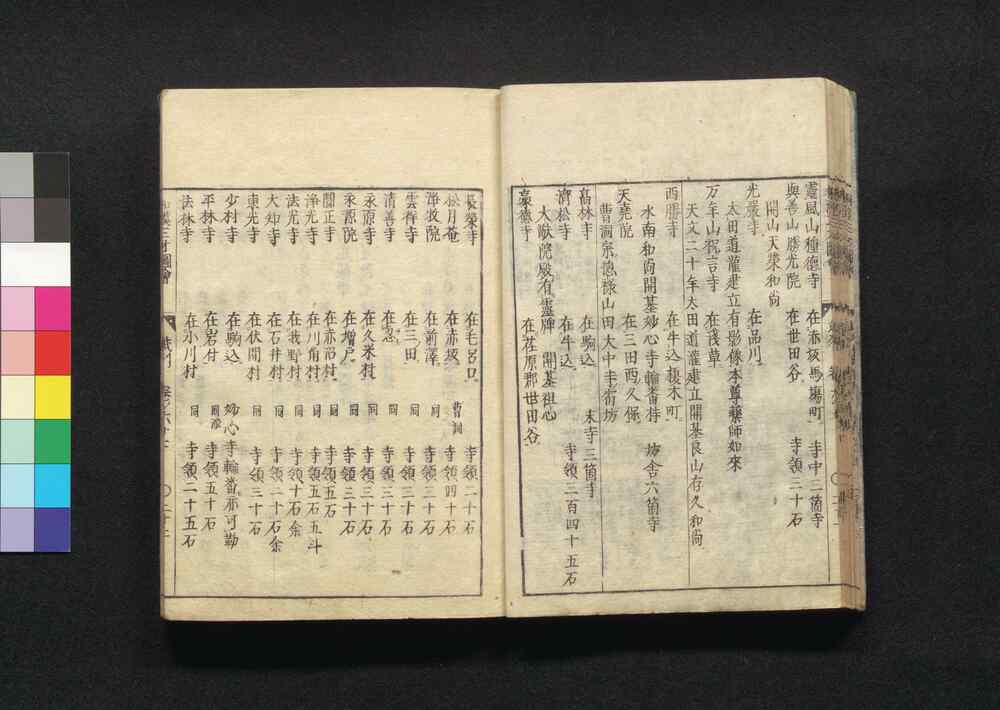 霊風山種徳寺 在赤坂馬場町 寺中三箇寺
興善山勝光院 在世田谷 寺領三十石
開山天榮和尚
光嚴寺 在品川
太田道灌建立有影像本尊藥師如來
万年山祝言寺 在淺草
天文二十年大田道灌建立開基良山右久和尚
西勝寺 在牛込榎木町
水南和尚開基妙心寺輪番持 坊舎六箇寺
天堯院 在三田西久保
曹洞宗徳山田大中寺宿坊
高林寺 在駒込 末寺三箇寺
濟松寺 在牛込 寺領三百四十五石
大猷院殿有靈牌 開基祖心
豪徳寺 在荏原郡世田谷
長榮寺 在毛呂口 寺領二十石
松月菴 在赤坂 曹洞 寺領四十石
淨牧院 在前澤 同 寺領三十石
雲祥寺 在三田 同 寺領三十石
清善寺 在忍 同 寺領三十石
永源寺 在久米村 同 寺領三十石
永源院 在増戸 同 寺領三十石
在赤沼村 同 寺領五石
淨光寺 在川角村 同 寺領五石五斗
法光寺 在我野村 同 寺領十石余
大知寺 在石井村 同 寺領二十石余
東光寺 在伏間村 同 寺領三十石
少林寺 在駒込 妙心寺輪番亦可勤
平林寺 在岩付 同派 寺領五十石
法林寺 在小川村 同 寺領二十五石